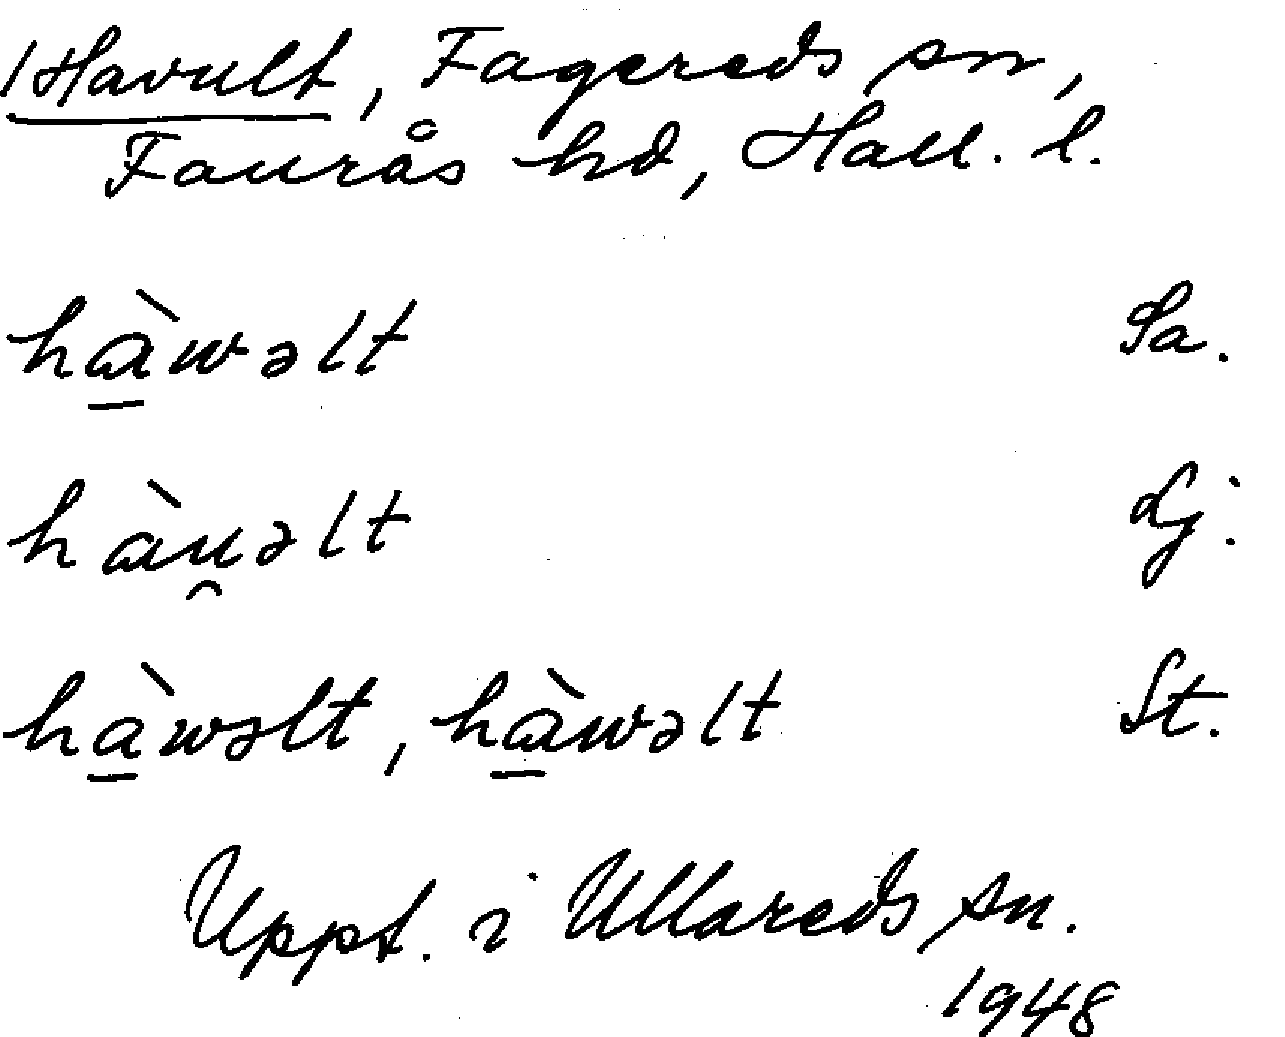 Havult, Fagereds sn,
Faurås hd, Hall. l.
hɑ̠̀wəlt Sa.
hɑ̀u̯əlt Lj.
hà̠wəlt, hɑ̠̀wəlt St.
Uppt. i Ullareds sn.
1948